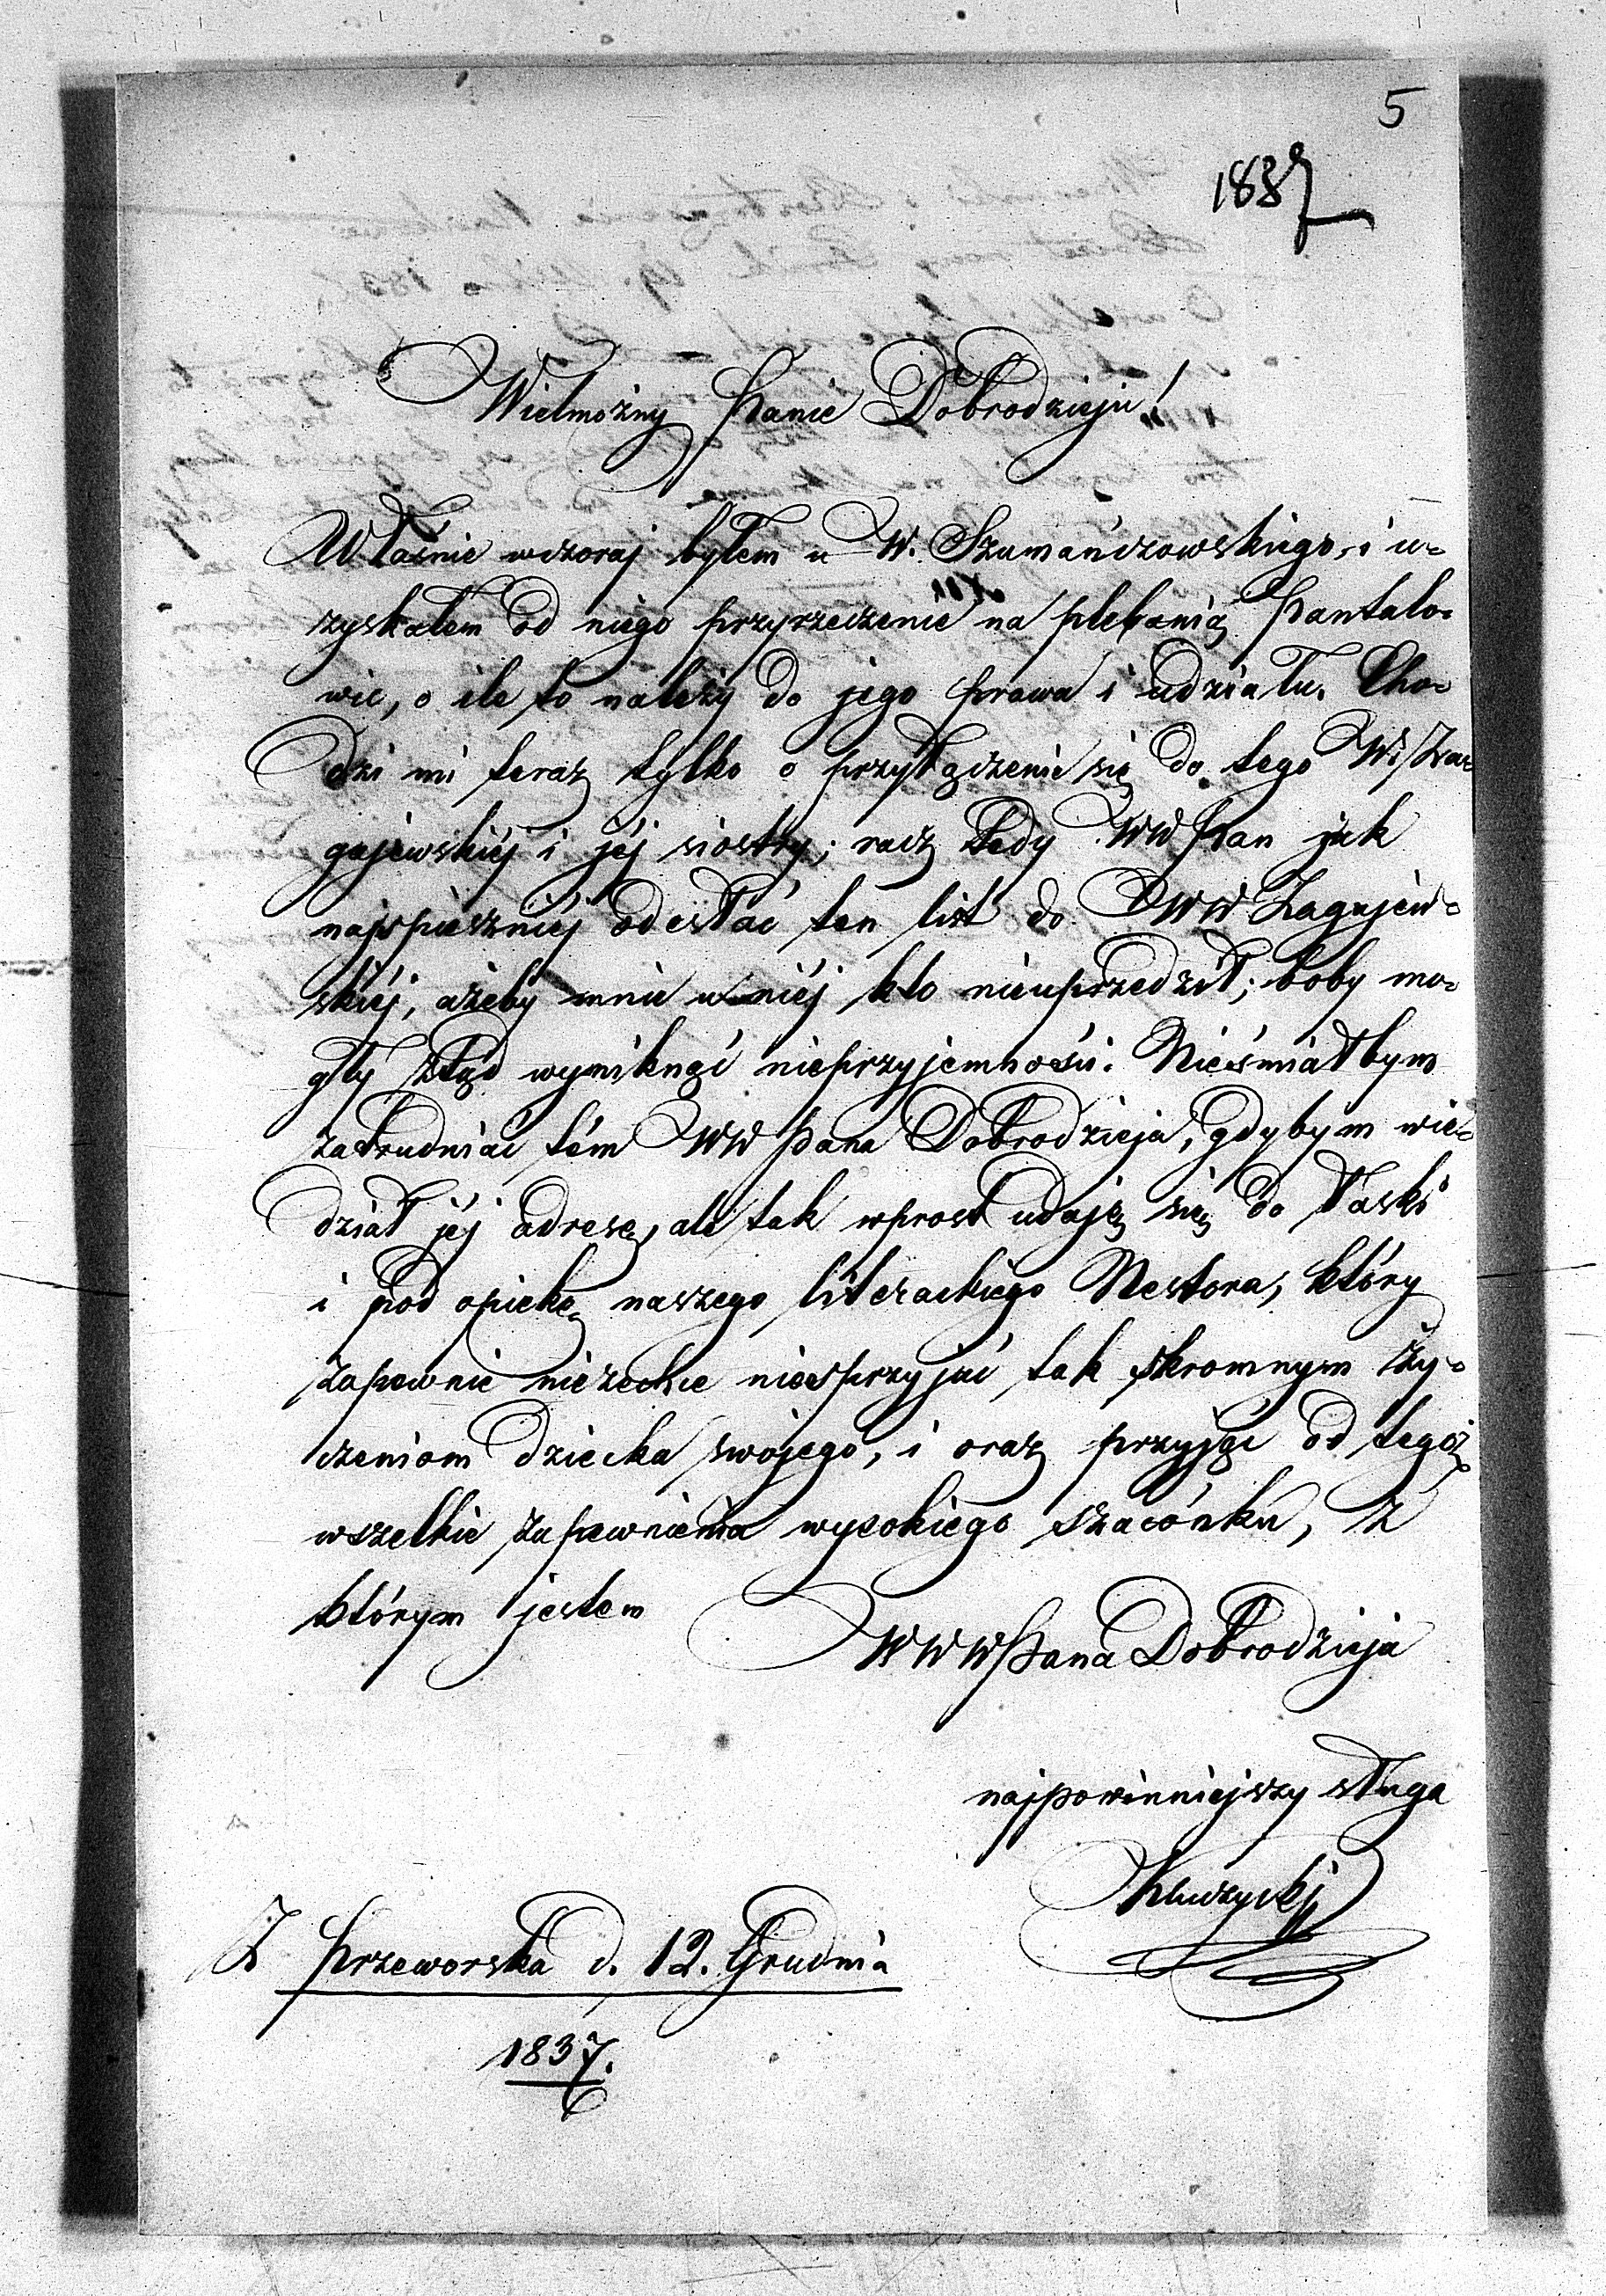 5
1837
Wielmożny Panie Dobrodzieju!
Właśnie wczoraj byłem u W. Szumańczowskiego, i u-
zyskałem od niego przyrzeczenie na plebanią Pantalo-
wic, o ile to należy do jego prawa i udziału. Cho-
dzi mi teraz tylko o przyłączenie się do tego W. Za-
gajewskiéj i jéj siostry; racz tedy WW Pan jak
najspieszniéj odesłać ten list do WW Zagajew-
skiéj, ażeby mnie u niéj kto nieuprzedził; boby mo-
gły ztąd wyniknąć nieprzyjemności. Nieśmiałbym
zatrudniać tém WW Pana Dobrodzieja, gdybym wie-
dział jéj adresę, ale tak wprost udaję się do łaski
i pod opiekę naszego literackiego Nestora, który
zapewnie niezechce niesprzyjać tak skromnym ży-
czeniom dziecka swojego, i oraz przyjąć od tegoż
wszelkie zapewnienia wysokiego szacónku, z
którym jestem
WWW Pana Dobrodzieja
najpowinniejszy sługa
Z Przeworska d. 12. Grudnia
1837.